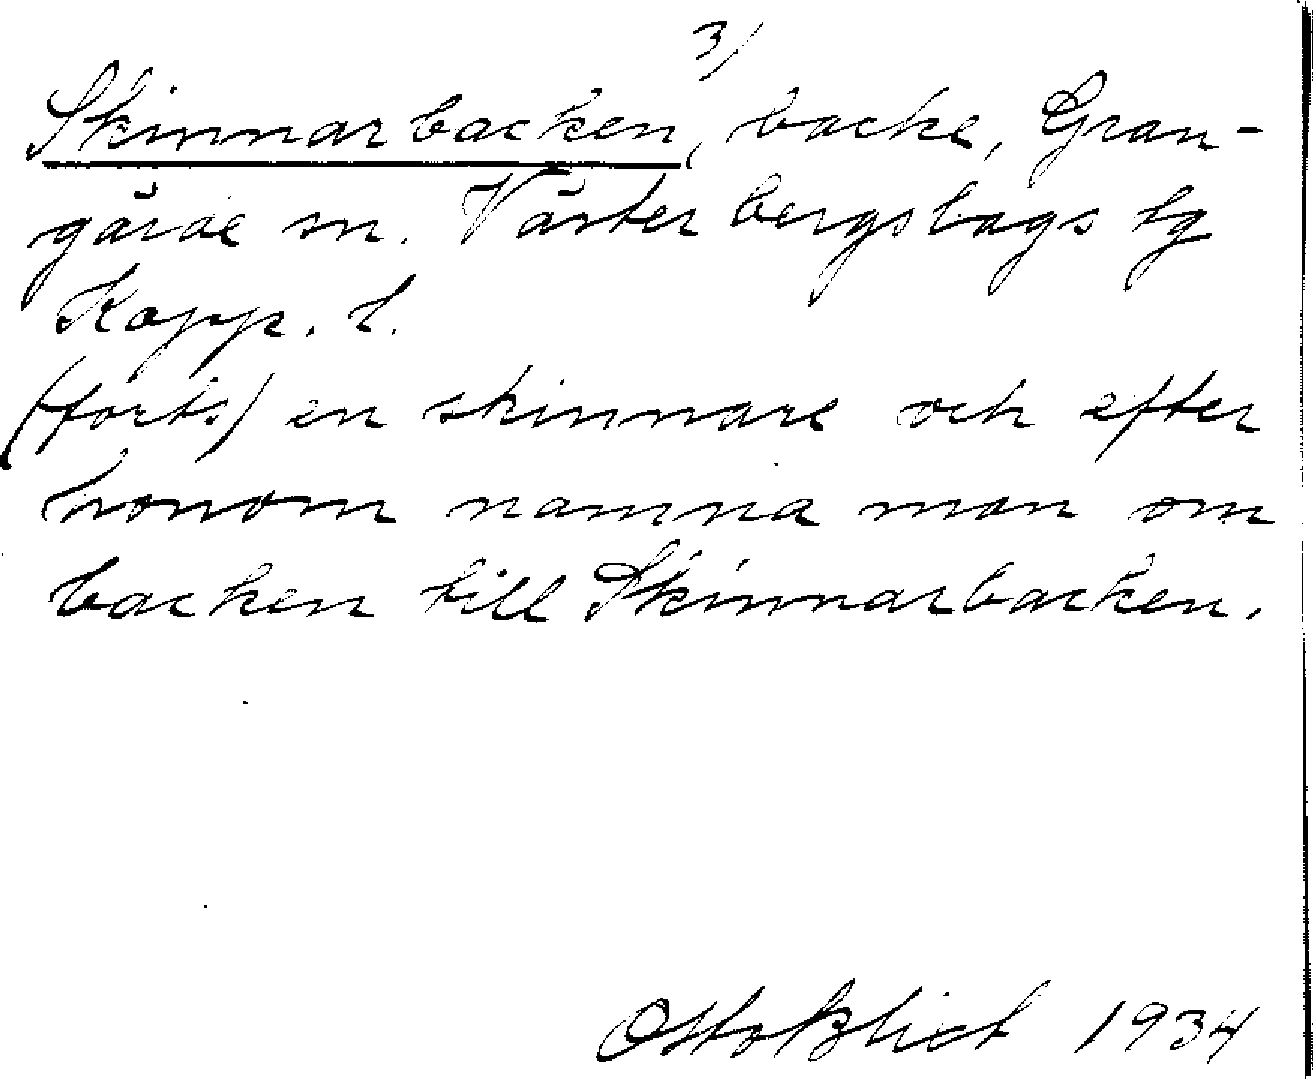 3/
Skinnarbacken, backe, Gran-
gärde sn. Västerbergslags tg
Kopp. l.
(forts) en skinnare och efter
honom namna man om
backen till Skinnarbacken.
Otto Blixt 1934